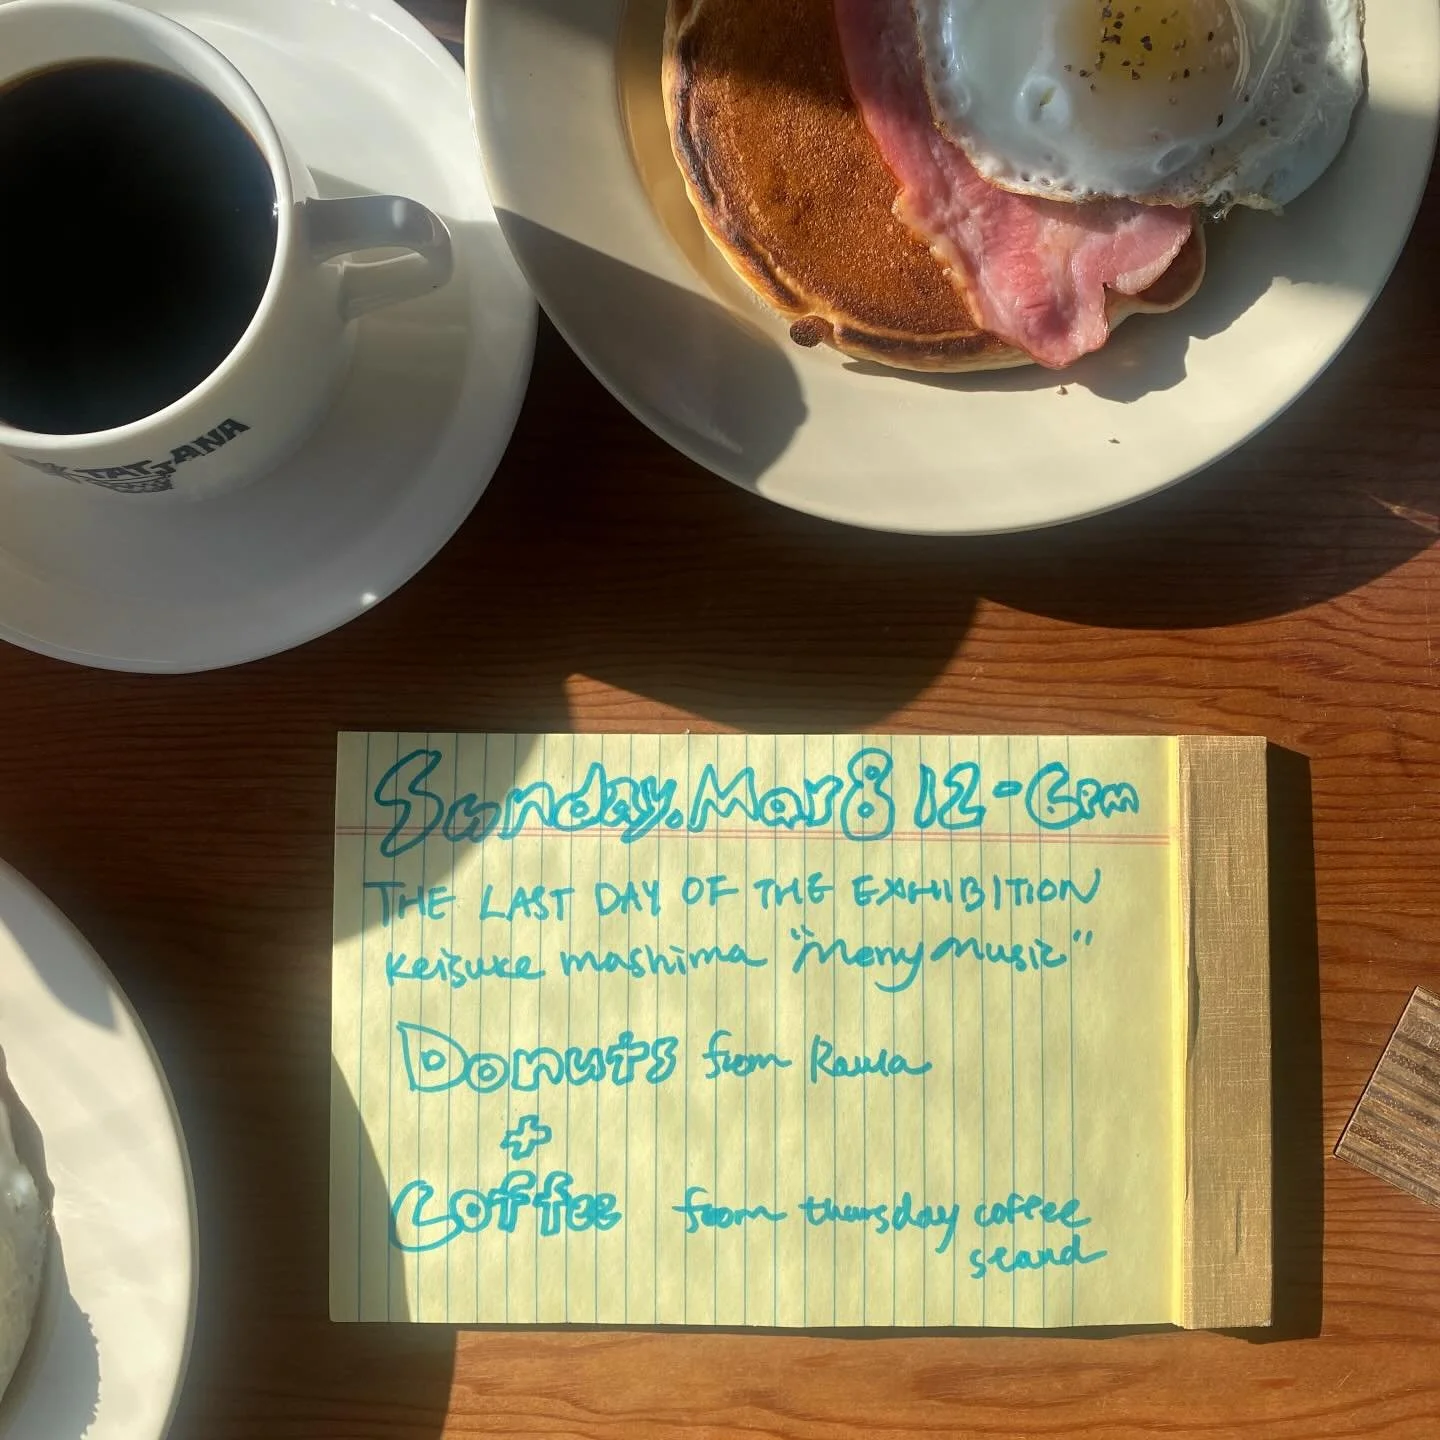 TATJANA
Sunday. Mar 8 12-6pm
THE LAST DAY OF THE EXHIBITION
Keisuke mashima "Merry Music"
Donuts from Raula
+
Coffee from thursday coffee
stand